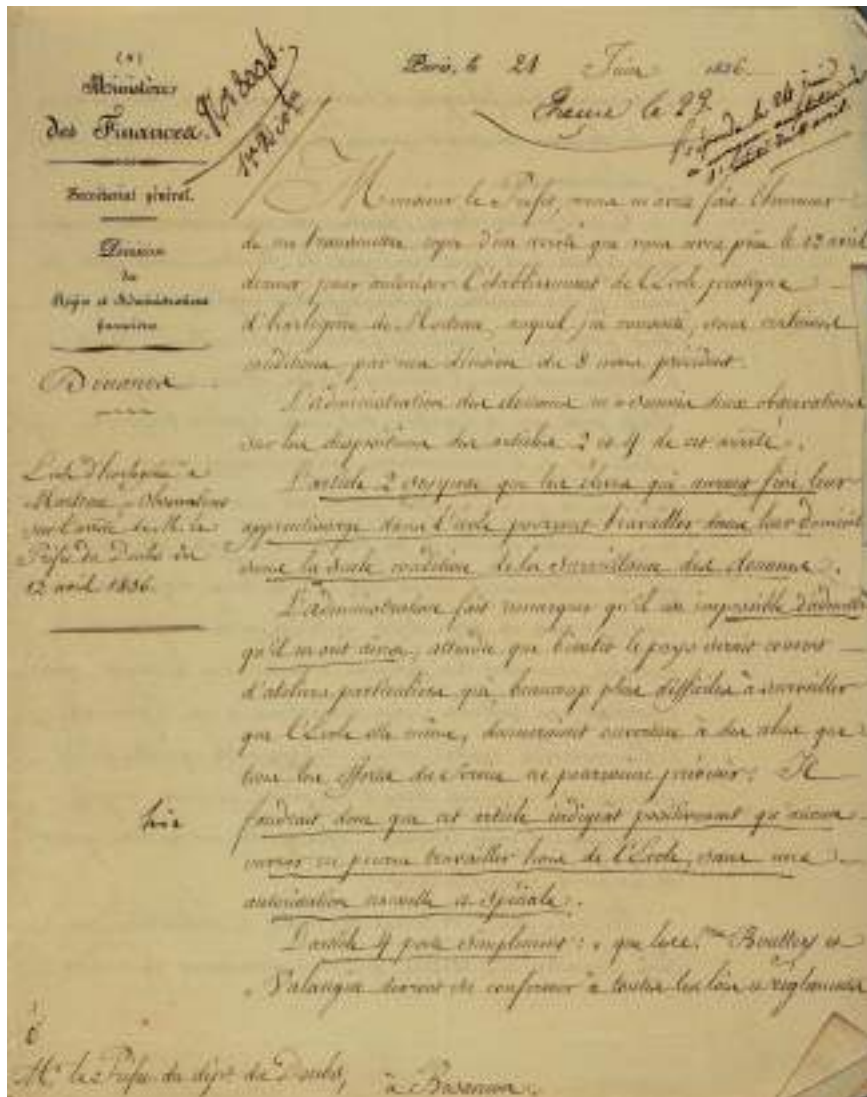 (4)
Ministère
des Finances.
Secrétariat général.
Division
des
Régies et Administrations
financières
Douanes
Ecole d'horlogerie à
Morteau. Observations
sur l'arrêté de M. le
Préfet du Doubs du
12 avril 1836.
Paris, le 21 Juin 1836.
le 27
le 24 juin
Monsieur le Préfet, vous m'avez fait l'honneur
de me transmettre copie d'un arrêté que vous avez pris le 12 avril
dernier, pour autoriser l'établissement de l'Ecole pratique
d'horlogerie de Morteau, auquel j'ai consenti, sous certaines
conditions, par ma décision du 8 mars précédent.
L'administration des douanes m'a soumis deux observations
sur les dispositions des articles 2 et 4 de cet arrêté.
L'article 2 suppose que les élèves qui auront fini leur
apprentissage dans l'école pourront travailler dans leur domicile
sous la seule condition de la surveillance des douanes.
L'administration fait remarquer qu'il est impossible d'admettre
qu'il en soit ainsi, attendu que bientôt le pays serait couvert
d'ateliers particuliers qui, beaucoup plus difficiles à surveiller
que l'Ecole elle même, donneraient ouverture à des abus que
tous les efforts du service ne pourraient prévenir. Il
faudrait donc que cet article indiquât positivement qu'aucun
ouvrier ne pourra travailler hors de l'Ecole, sans une
autorisation nouvelle et spéciale.
L'article 4 porte simplement: "que les Srs Bouttey et
" Valangin devront se conformer à toutes les lois et règlements
Mr le Préfet du dépt du Doubs, à Besançon.